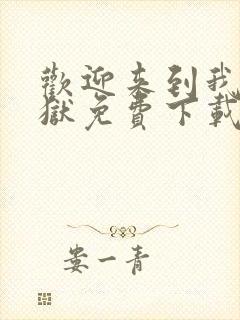 歡迎来到我
獄免費下載
娄一青